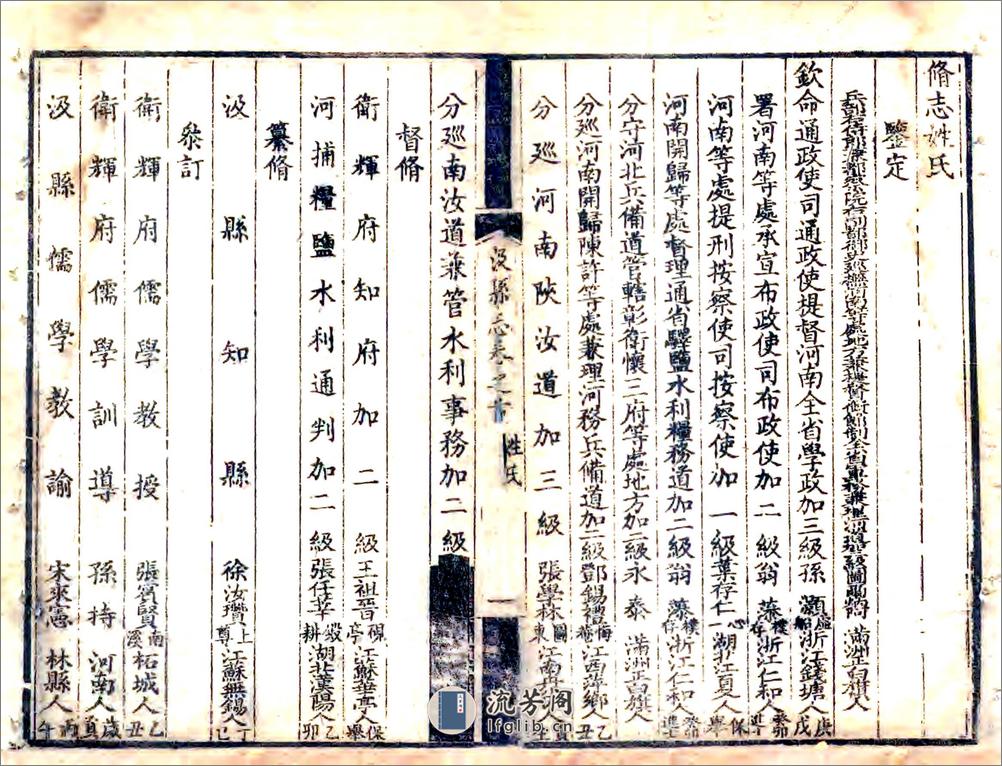 脩志姓氏
鑒定
欽命通政使司通政使提督河南全省學政加三級孫 灝 浙江錢塘人 庚戌
署河南等處承宣布政使司布政使加二級翁 藻 樸存 浙江仁和人 癸卯
河南等處提刑按察使司按察使加一級葉存仁 心一 湖北江夏人 保舉
河南開歸等處督理通省驛鹽水利糧務道加二級翁 藻 樸存 浙江仁和人 癸卯
分守河北兵備道管轄彰衛懷三府等處地方加二級永 泰 滿洲正白旗人
分巡河南開歸陳許等處兼理河務兵備道加二級鄧錫禮 江西萍鄉 乙丑
分巡河南陝汝道加三級 張學林 江南丹
汲縣志卷之首 姓氏 一
分巡南汝道兼管水利事務加二級
督脩
衛輝府知府加二級王祖晉 硯亭 江蘇華亭人 保舉
河捕糧鹽水利通判加二級張任莘 毅耕 湖北漢陽人 乙卯
纂脩
汲縣知縣 徐汝瓚 上尊 江蘇無錫人 丁巳
叅訂
衛輝府儒學教授 張資賢 南溪 柘城人 乙丑
衛輝府儒學訓導 孫特 河南人 歲貢
汲縣儒學教諭 宋來憲 林縣人 丙午
流芳閣
lfglib.cn